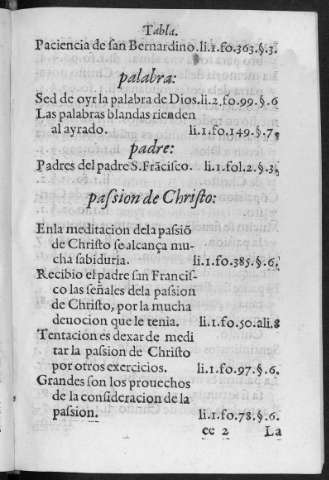 Tabla.
Paciencia de san Bernardino. li.1.fo.363.§.3.
palabra:
Sed de oyr la palabra de Dios. li.2.fo.99.§.6
Las palabras blandas rienden
al ayrado. li.1.fo.149.§.7.
padre:
Padres del padre S. Frãcisco. li.1.fol.2.§.3.
passion de Christo:
Enla meditacion dela passiõ
de Christo se alcança mu-
cha sabiduria. li.1.fo.385.§.6.
Recibio el padre san Francis-
co las señales dela passion
de Christo, por la mucha
deuocion que le tenia. li.1.fo.50.ali.8
Tentacion es dexar de medi
tar la passion de Christo
por otros exercicios. li.1.fo.97.§.6.
Grandes son los prouechos
de la consideracion de la
passion. li.1.fo.78.§.6.
ee 2 La